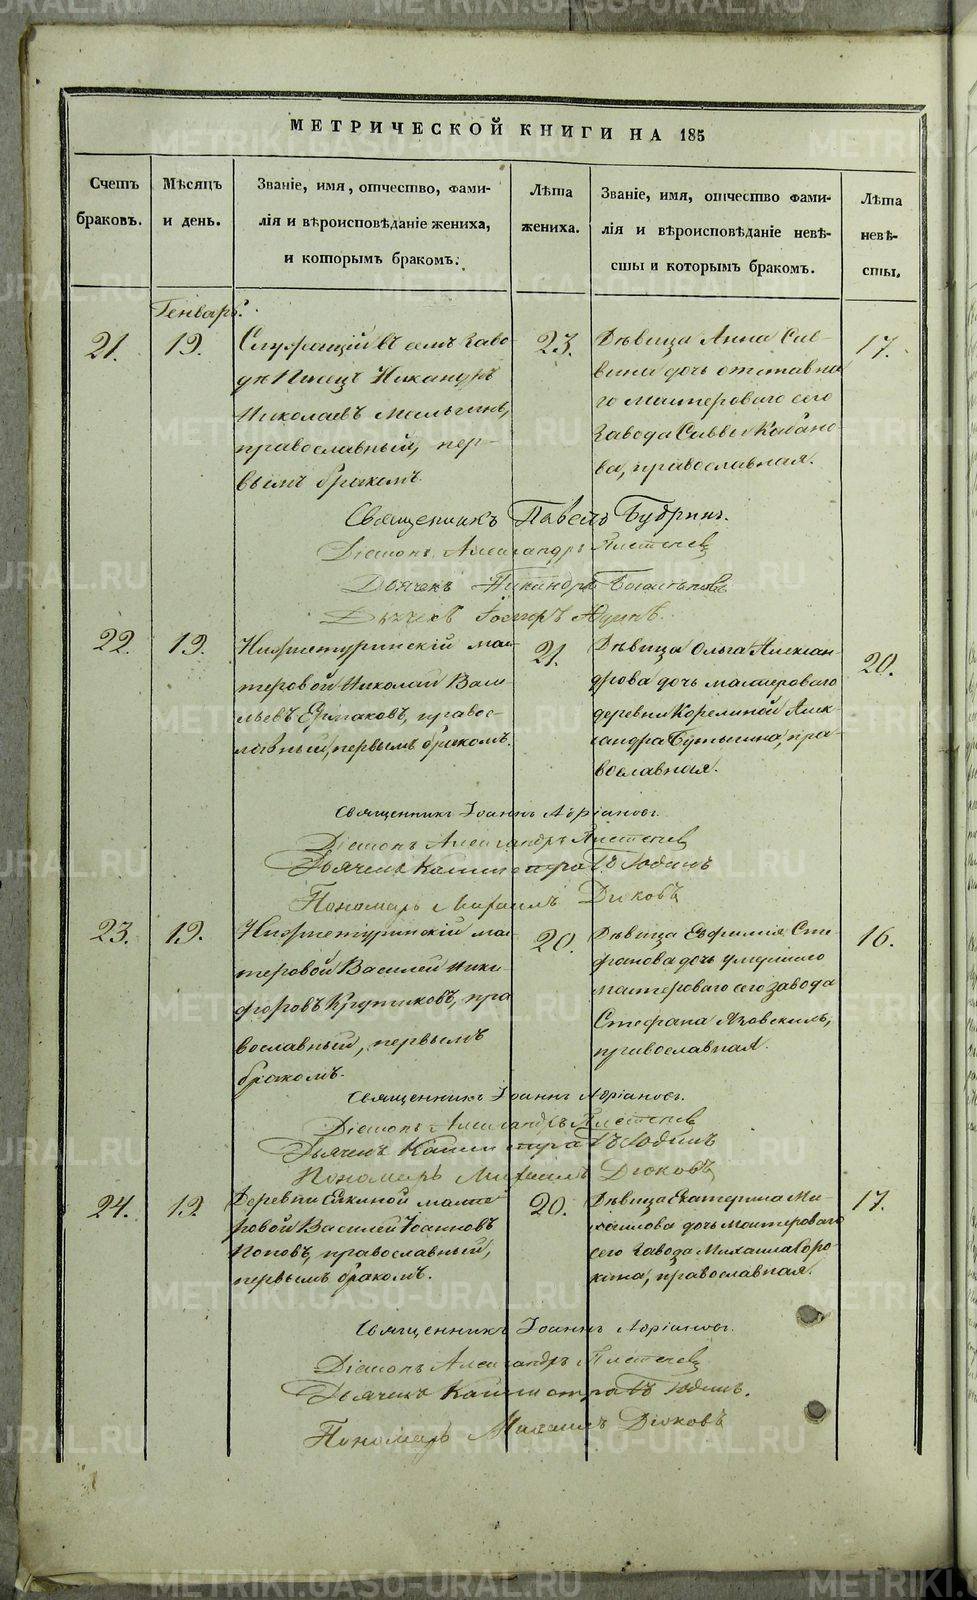 МЕТРИЧЕСКОЙ КНИГИ НА 185
Счетъ браковъ.
Мѣсяцъ и день.
Званіе, имя, отчество, фами-
лія и вѣроисповѣданіе жениха,
и которымъ бракомъ.
Лѣта жениха.
Званіе, имя, отчество фами-
лія и вѣроисповѣданіе невѣ-
сты и которымъ бракомъ.
Лѣта невѣ-
сты.
Генварь.
21.
19.
Служащій въ семъ заво
дѣ Писецъ Никандръ
Николаевъ
православный, пер-
вымъ бракомъ.
23.
Дѣвица Анна Сав-
вина дочь отставна
го мастероваго сего
завода Саввы Кабано
ва, православная.
17.
Священникъ Павелъ Будринъ.
Діаконъ Александръ
Дьячекъ Никандръ
Дьячекъ
22.
19.
Нижнетуринскій мас-
теровой Николай Васи-
льевъ Ермаковъ, правос-
лавный, первымъ бракомъ.
21.
Дѣвица Ольга Алексан-
дрова дочь мастероваго
деревни Корелиной Алек-
сандра православ
вославная.
20.
Священникъ Іоаннъ Адріановъ.
Діаконъ Александръ
Дьячекъ Каллистратъ Юдинъ
Пономарь Михаилъ Дюковъ
23.
19.
Нижнетуринскій мас-
теровой Василей Ники-
форовъ Крутиковъ, пра
вославный, первымъ
бракомъ.
20.
Дѣвица Евфимія Сте
фанова дочь умершаго
мастероваго сего завода
Стефана
православная.
16.
Священникъ Іоаннъ Адріановъ.
Діаконъ Александръ
Дьячекъ Каллистратъ Юдинъ
Пономарь Михаилъ Дюковъ
24.
19.
Деревни Елкиной масте
ровой Василей Іоанновъ
Поповъ, православный,
первымъ бракомъ.
20.
Дѣвица Екатерина Ми-
хаилова дочь мастероваго
сего завода Михаила Соро
кина, православная.
17.
Священникъ Іоаннъ Адріановъ.
Діаконъ Александръ
Дьячекъ Каллистратъ Юдинъ.
Пономарь Михаилъ Дюковъ
METRIKI.GASO-URAL.RU